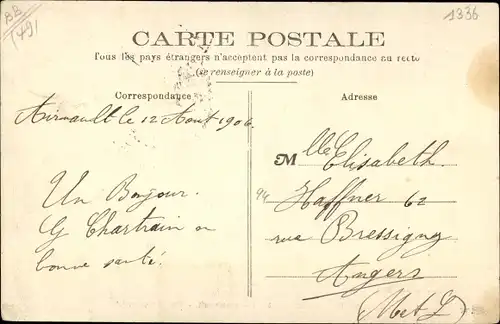 BB
(49)
1336
CARTE POSTALE
Tous les pays étrangers n'acceptent pas la correspondance au recto
(se renseigner à la poste)
Correspondance
Adresse
Airvault le 12 Aout 1906
Un Bonjour.
G Chartrain en
bonne santé.
Mlle Elisabeth
94
Haffner 62
rue Bressigny
Angers
(M et L)